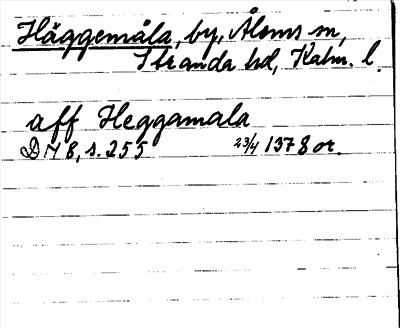 Häggemåla, by, Ålems sn,
Stranda hd, Kalm. l.
aff Heggamala
D 78, s. 255 23/4 1378 or.